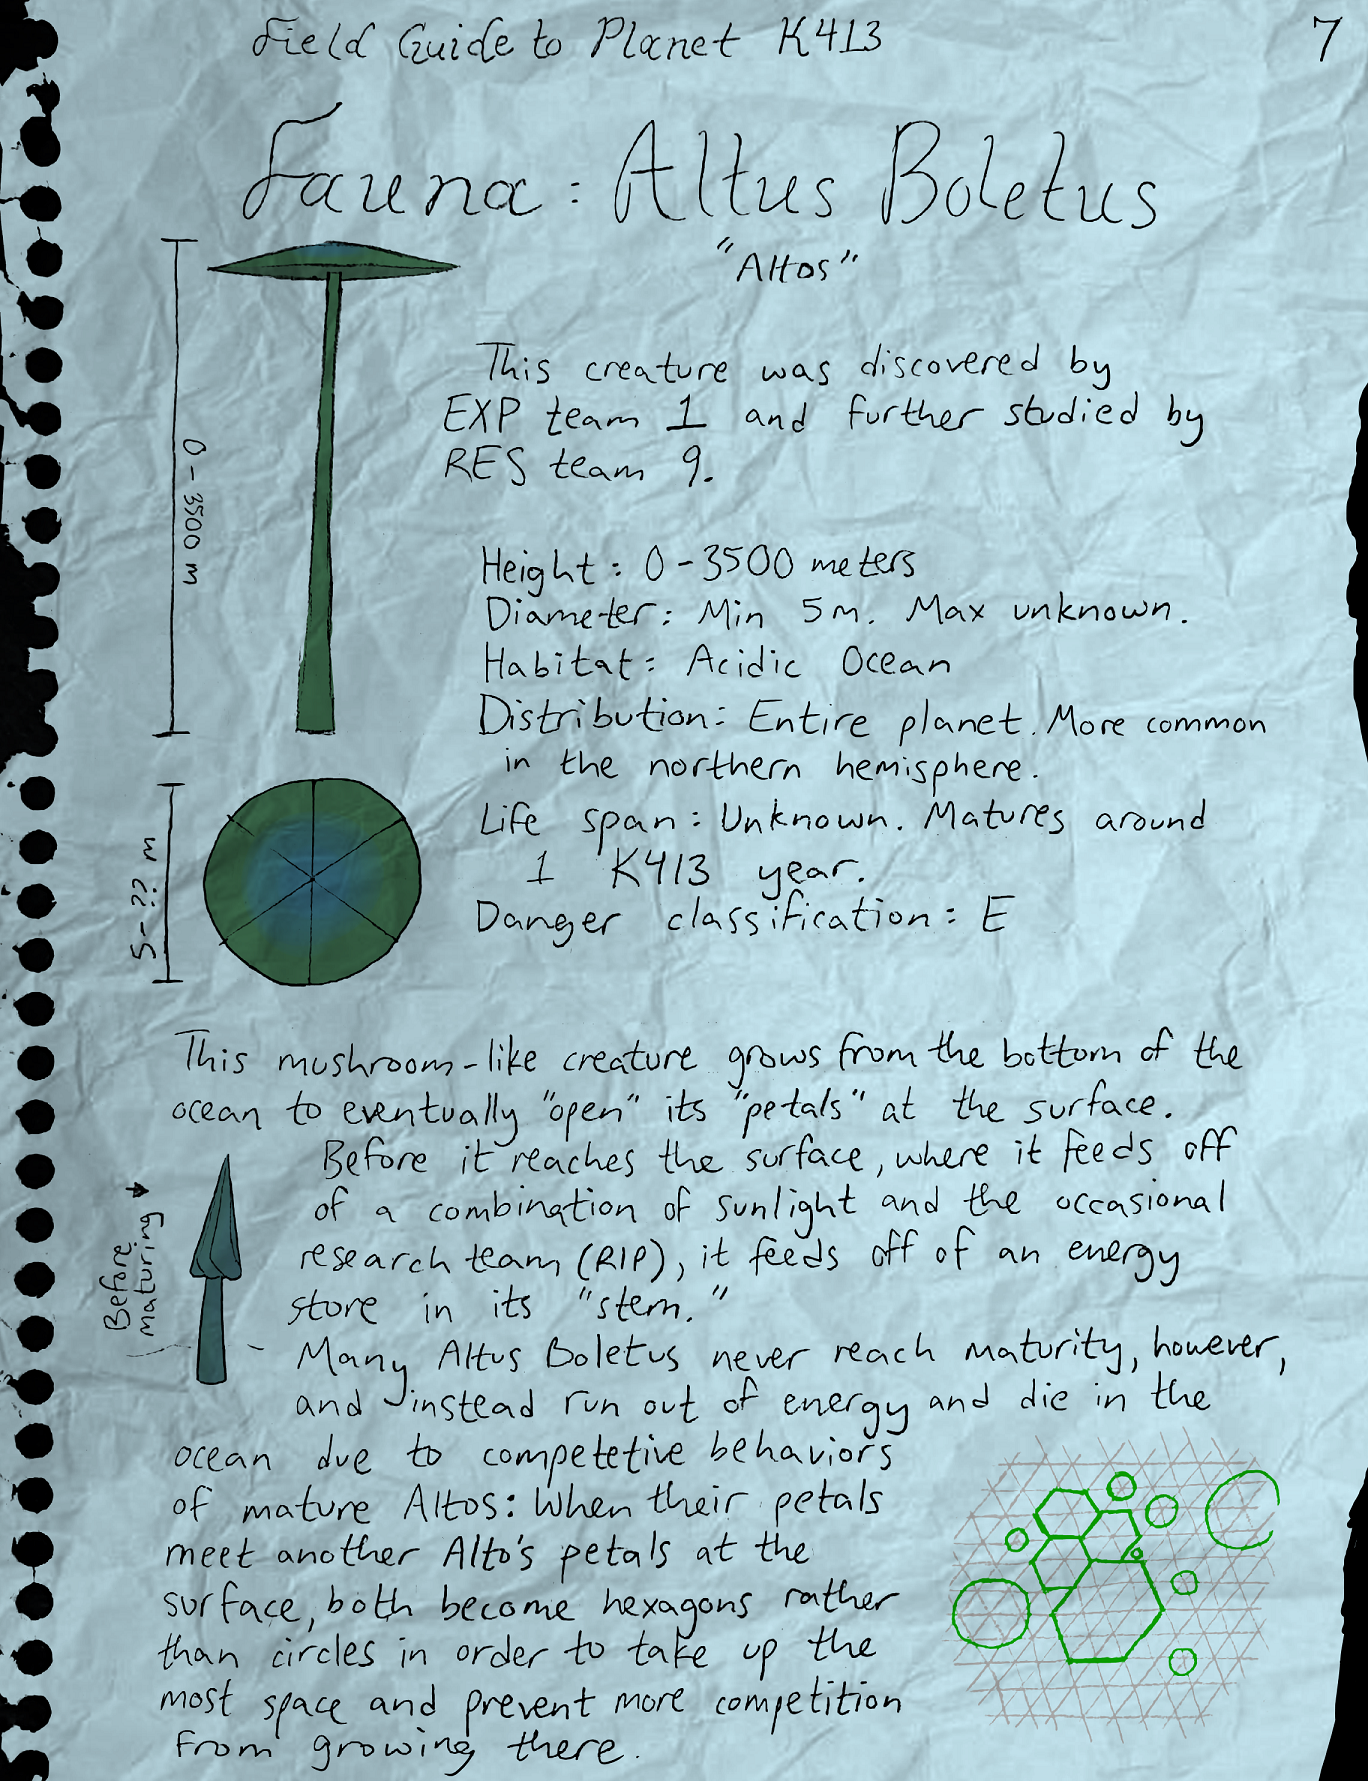 Field Guide to Planet K413
7
Fauna: Altus Boletus
"Altos"
0-3500 m
This creature was discovered by
EXP team 1 and further studied by
RES team 9.
Height: 0-3500 meters
Diameter: Min 5m. Max unknown.
Habitat: Acidic Ocean
Distribution: Entire planet. More common
in the northern hemisphere.
Life span: Unknown. Matures around
1 K413 year.
Danger classification: E
5-?? m
This mushroom-like creature grows from the bottom of the
ocean to eventually "open" its "petals" at the surface.
Before it reaches the surface, where it feeds off
of a combination of sunlight and the occasional
research team (RIP), it feeds off of an energy
store in its "stem."
Before
maturing
Many Altus Boletus never reach maturity, however,
and instead run out of energy and die in the
ocean due to competetive behaviors
of mature Altos: When their petals
meet another Alto's petals at the
surface, both become hexagons rather
than circles in order to take up the
most space and prevent more competition
from growing there.